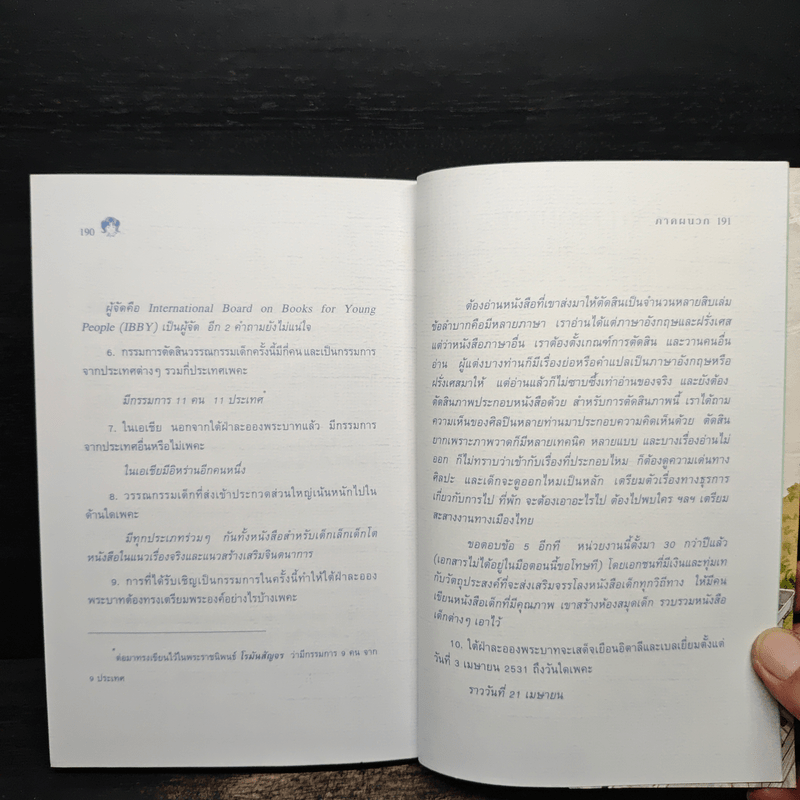 190
ผู้จัดคือ International Board on Books for Young
People (IBBY) เป็นผู้จัด อีก 2 คำถามยังไม่แน่ใจ
6. กรรมการตัดสินวรรณกรรมเด็กครั้งนี้มีกี่คน และเป็นกรรมการ
จากประเทศต่างๆ รวมกี่ประเทศเพคะ
มีกรรมการ 11 คน 11 ประเทศ*
7. ในเอเชีย นอกจากใต้ฝ่าละอองพระบาทแล้ว มีกรรมการ
จากประเทศอื่นหรือไม่เพคะ
ในเอเชียมีอิหร่านอีกคนหนึ่ง
8. วรรณกรรมเด็กที่ส่งเข้าประกวดส่วนใหญ่เน้นหนักไปใน
ด้านใดเพคะ
มีทุกประเภทรวมๆ กันทั้งหนังสือสำหรับเด็กเล็กเด็กโต
หนังสือในแนวเรื่องจริงและแนวสร้างเสริมจินตนาการ
9. การที่ได้รับเชิญเป็นกรรมการในครั้งนี้ทำให้ใต้ฝ่าละออง
พระบาทต้องทรงเตรียมพระองค์อย่างไรบ้างเพคะ
*ต่อมาทรงเขียนไว้ในพระราชนิพนธ์ โรมันสัญจร ว่ามีกรรมการ 9 คน จาก
9 ประเทศ
ภาคผนวก 191
ต้องอ่านหนังสือที่เขาส่งมาให้ตัดสินเป็นจำนวนหลายสิบเล่ม
ข้อลำบากคือมีหลายภาษา เราอ่านได้แต่ภาษาอังกฤษและฝรั่งเศส
แต่ว่าหนังสือภาษาอื่น เราต้องตั้งเกณฑ์การตัดสิน และวานคนอื่น
อ่าน ผู้แต่งบางท่านก็มีเรื่องย่อหรือคำแปลเป็นภาษาอังกฤษหรือ
ฝรั่งเศสมาให้ แต่อ่านแล้วก็ไม่ซาบซึ้งเท่าอ่านของจริง และยังต้อง
ตัดสินภาพประกอบหนังสือด้วย สำหรับการตัดสินภาพนี้ เราได้ถาม
ความเห็นของศิลปินหลายท่านมาประกอบความคิดเห็นด้วย ตัดสิน
ยากเพราะภาพวาดก็มีหลายเทคนิค หลายแบบ และบางเรื่องอ่านไม่
ออก ก็ไม่ทราบว่าเข้ากับเรื่องที่ประกอบไหม ก็ต้องดูความเด่นทาง
ศิลปะ และเด็กจะดูออกไหมเป็นหลัก เตรียมตัวเรื่องทางธุรการ
เกี่ยวกับการไป ที่พัก จะต้องเอาอะไรไป ต้องไปพบใคร ฯลฯ เตรียม
สะสางงานทางเมืองไทย
ขอตอบข้อ 5 อีกที หน่วยงานนี้ตั้งมา 30 กว่าปีแล้ว
(เอกสารไม่ได้อยู่ในมือตอนนี้ขอโทษที) โดยเอกชนที่มีเงินและทุ่มเท
กับวัตถุประสงค์ที่จะส่งเสริมจรรโลงหนังสือเด็กทุกวิถีทาง ให้มีคน
เขียนหนังสือเด็กที่มีคุณภาพ เขาสร้างห้องสมุดเด็ก รวบรวมหนังสือ
เด็กต่างๆ เอาไว้
10. ใต้ฝ่าละอองพระบาทจะเสด็จเยือนอิตาลีและเบลเยี่ยมตั้งแต่
วันที่ 3 เมษายน 2531 ถึงวันใดเพคะ
ราววันที่ 21 เมษายน